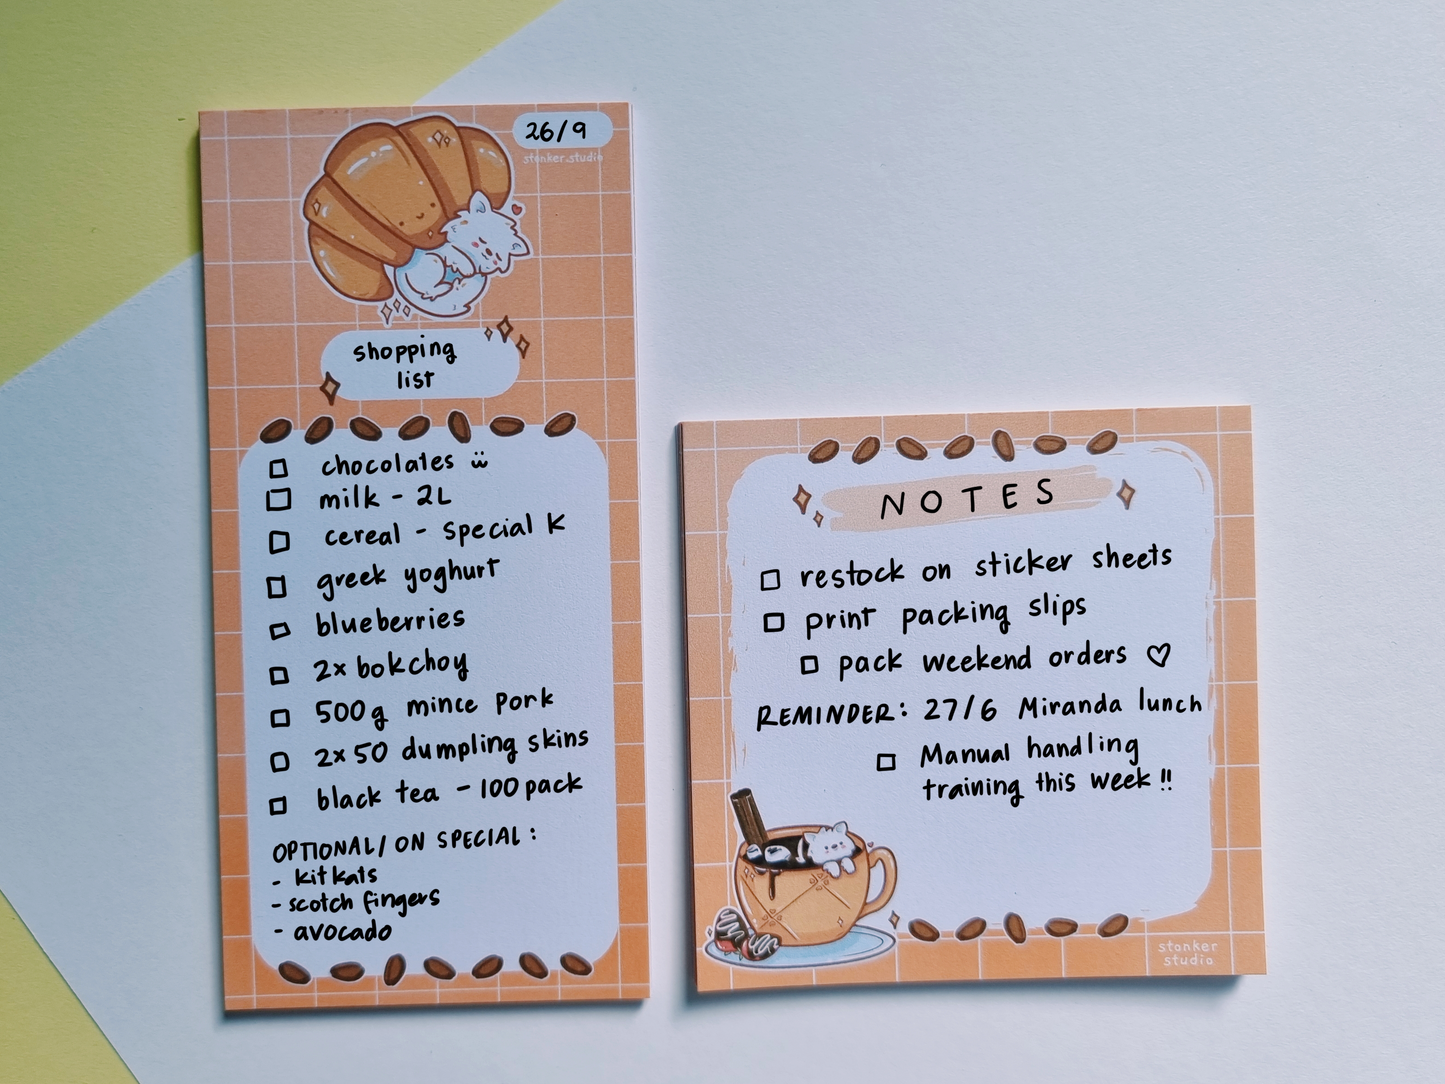 26/9
stonker.studio
shopping
list
chocolates
milk - 2L
cereal - Special K
greek yoghurt
blueberries
2x bokchoy
500g mince pork
2x 50 dumpling skins
black tea - 100 pack
OPTIONAL/ON SPECIAL:
- kitkats
- scotch fingers
- avocado
NOTES
restock on sticker sheets
print packing slips
pack weekend orders ♡
REMINDER: 27/6 Miranda lunch
Manual handling
training this week!!
stonker
studio